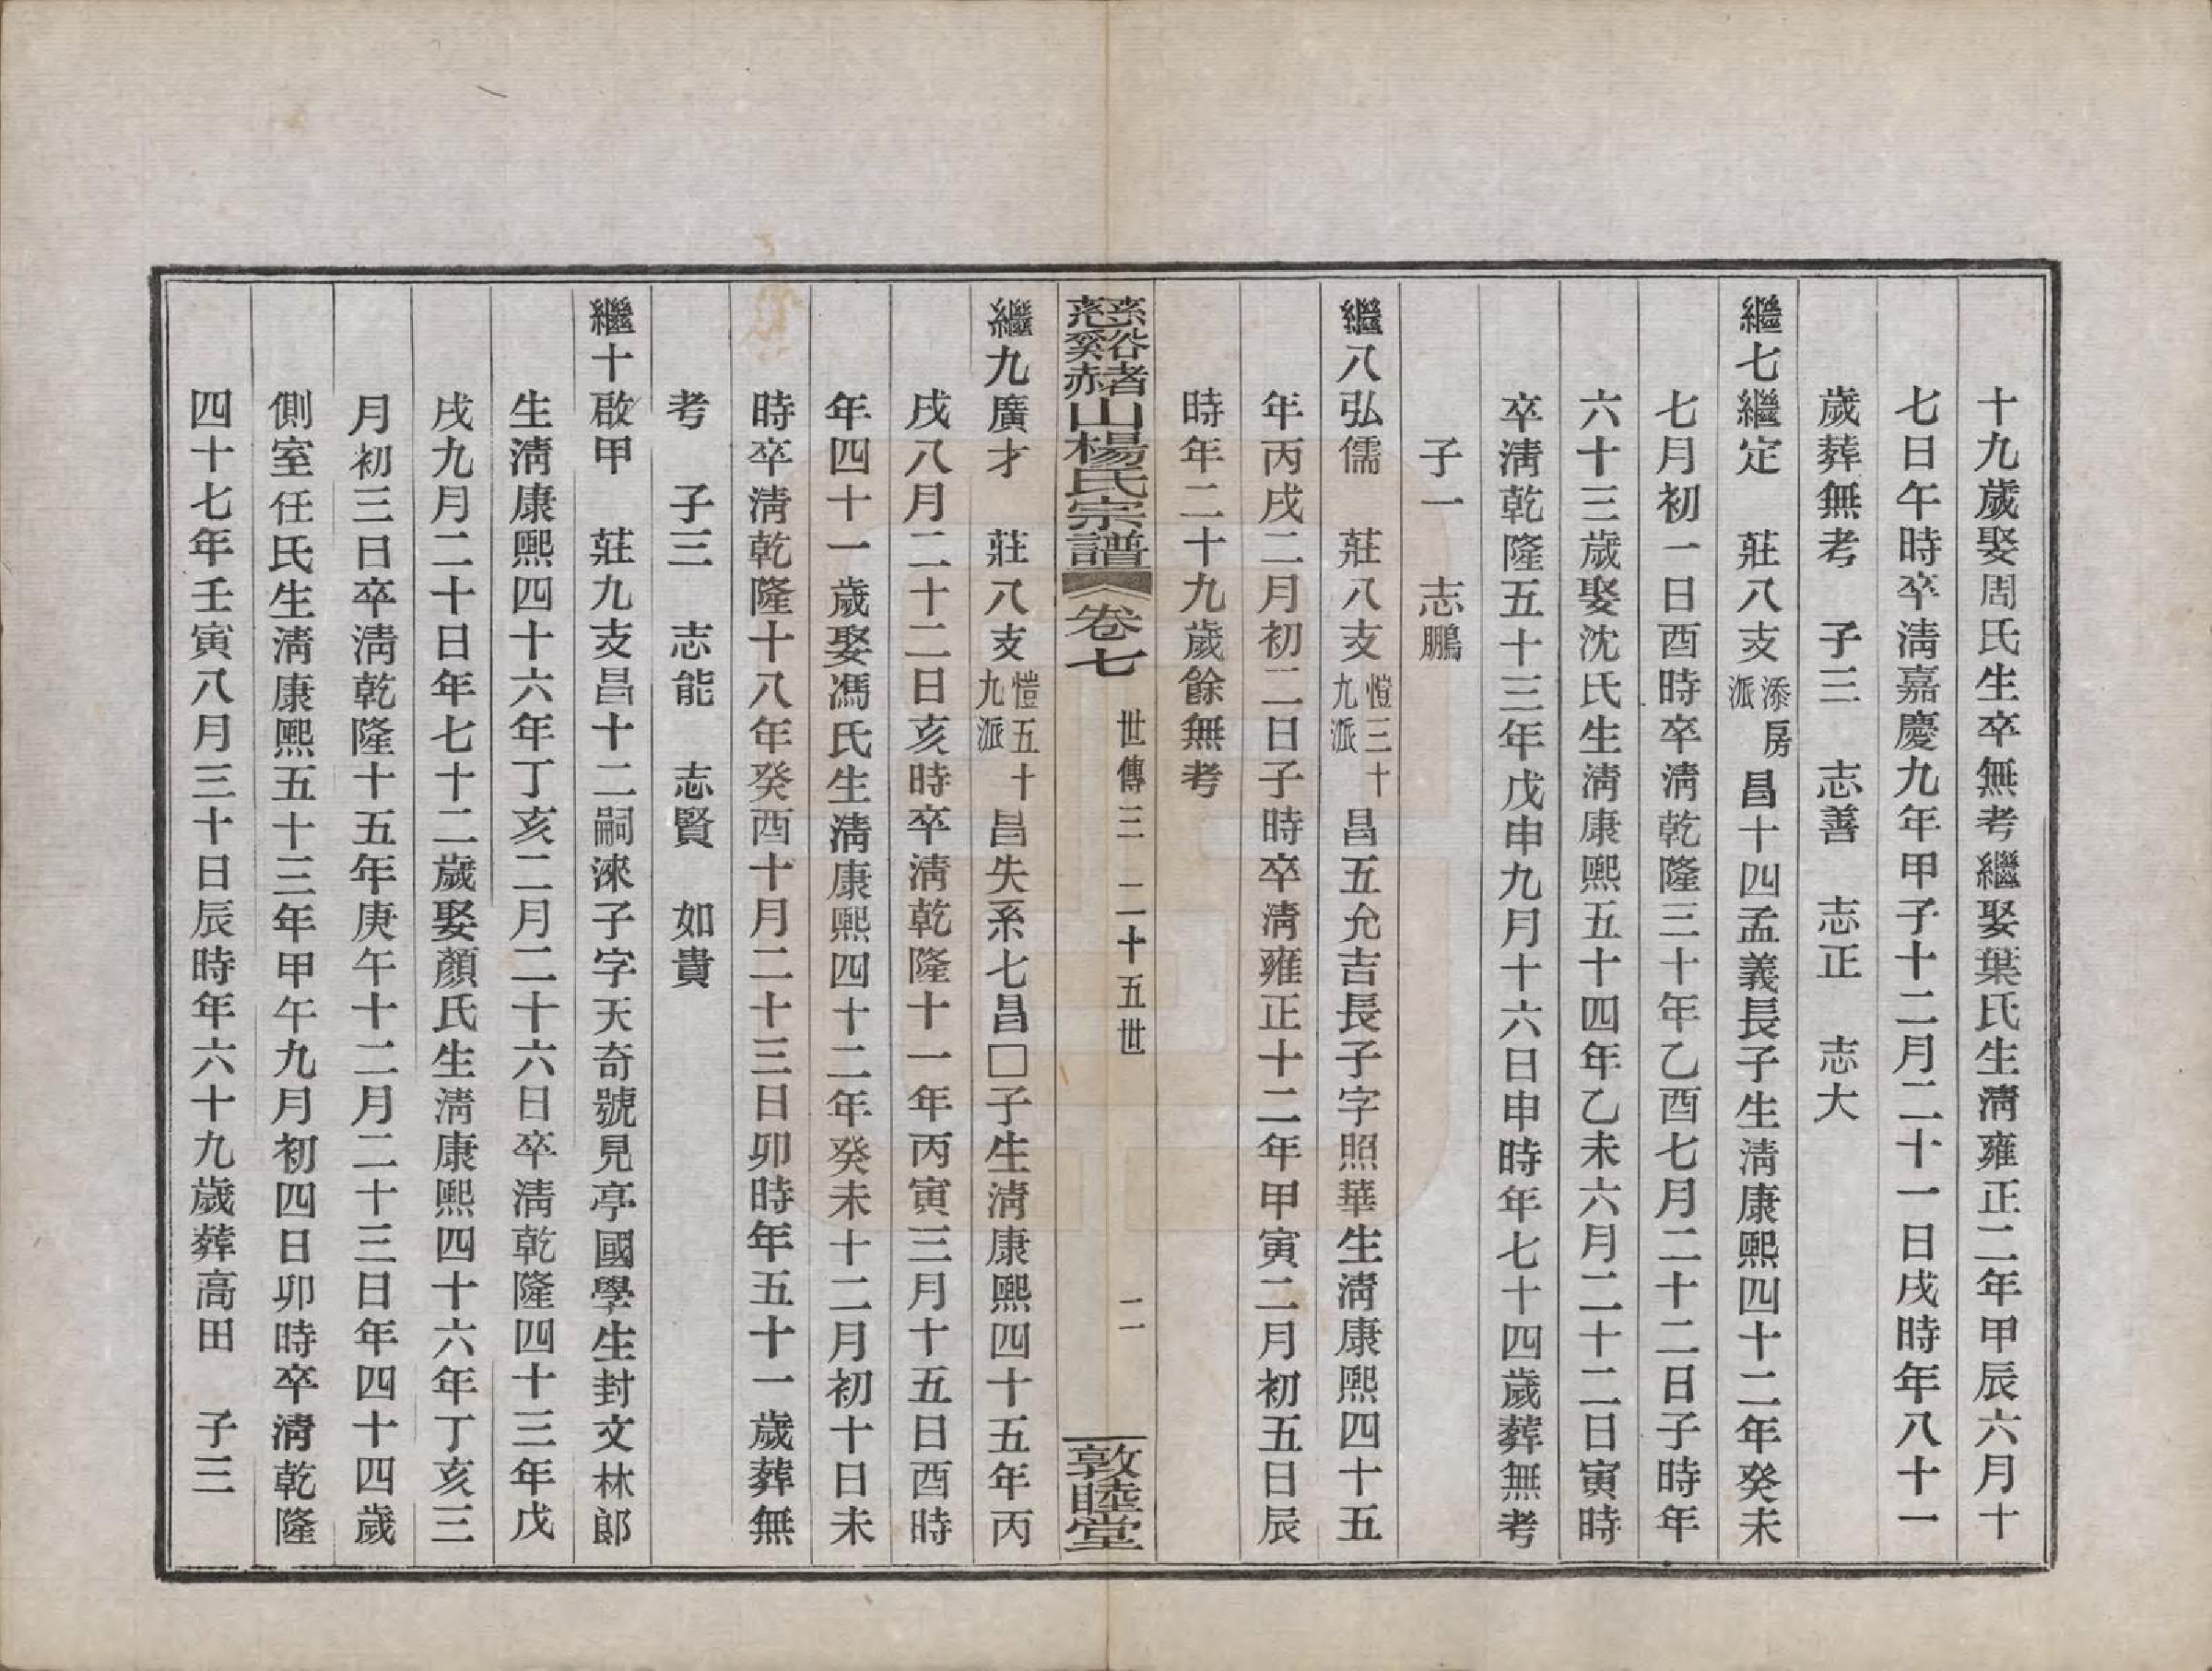 十九歲娶周氏生卒無考繼娶葉氏生淸雍正二年甲辰六月十
七日午時卒淸嘉慶九年甲子十二月二十一日戌時年八十一
歲葬無考　子三　志善　志正　志大
繼七繼定　莊八支添房派昌十四孟義長子生淸康熙四十二年癸未
七月初一日酉時卒淸乾隆三十年乙酉七月二十二日子時年
六十三歲娶沈氏生淸康熙五十四年乙未六月二十二日寅時
卒淸乾隆五十三年戊申九月十六日申時年七十四歲葬無考
子一　志鵬
繼八弘儒　莊八支愷三十九派昌五允吉長子字照華生淸康熙四十五
年丙戌二月初二日子時卒淸雍正十二年甲寅二月初五日辰
時年二十九歲餘無考
慈谿赭山楊氏宗譜　卷七　世傳三　二十五世　二　敦睦堂
繼九廣才　莊八支愷五十九派昌失系七昌□子生淸康熙四十五年丙
戌八月二十二日亥時卒淸乾隆十一年丙寅三月十五日酉時
年四十一歲娶馮氏生淸康熙四十二年癸未十二月初十日未
時卒淸乾隆十八年癸酉十月二十三日卯時年五十一歲葬無
考　子三　志能　志賢　如貴
繼十啟甲　莊九支昌十二嗣淶子字天奇號見亭國學生封文林郎
生淸康熙四十六年丁亥二月二十六日卒淸乾隆四十三年戊
戌九月二十日年七十二歲娶顏氏生淸康熙四十六年丁亥三
月初三日卒淸乾隆十五年庚午十二月二十三日年四十四歲
側室任氏生淸康熙五十三年甲午九月初四日卯時卒淸乾隆
四十七年壬寅八月三十日辰時年六十九歲葬高田　子三